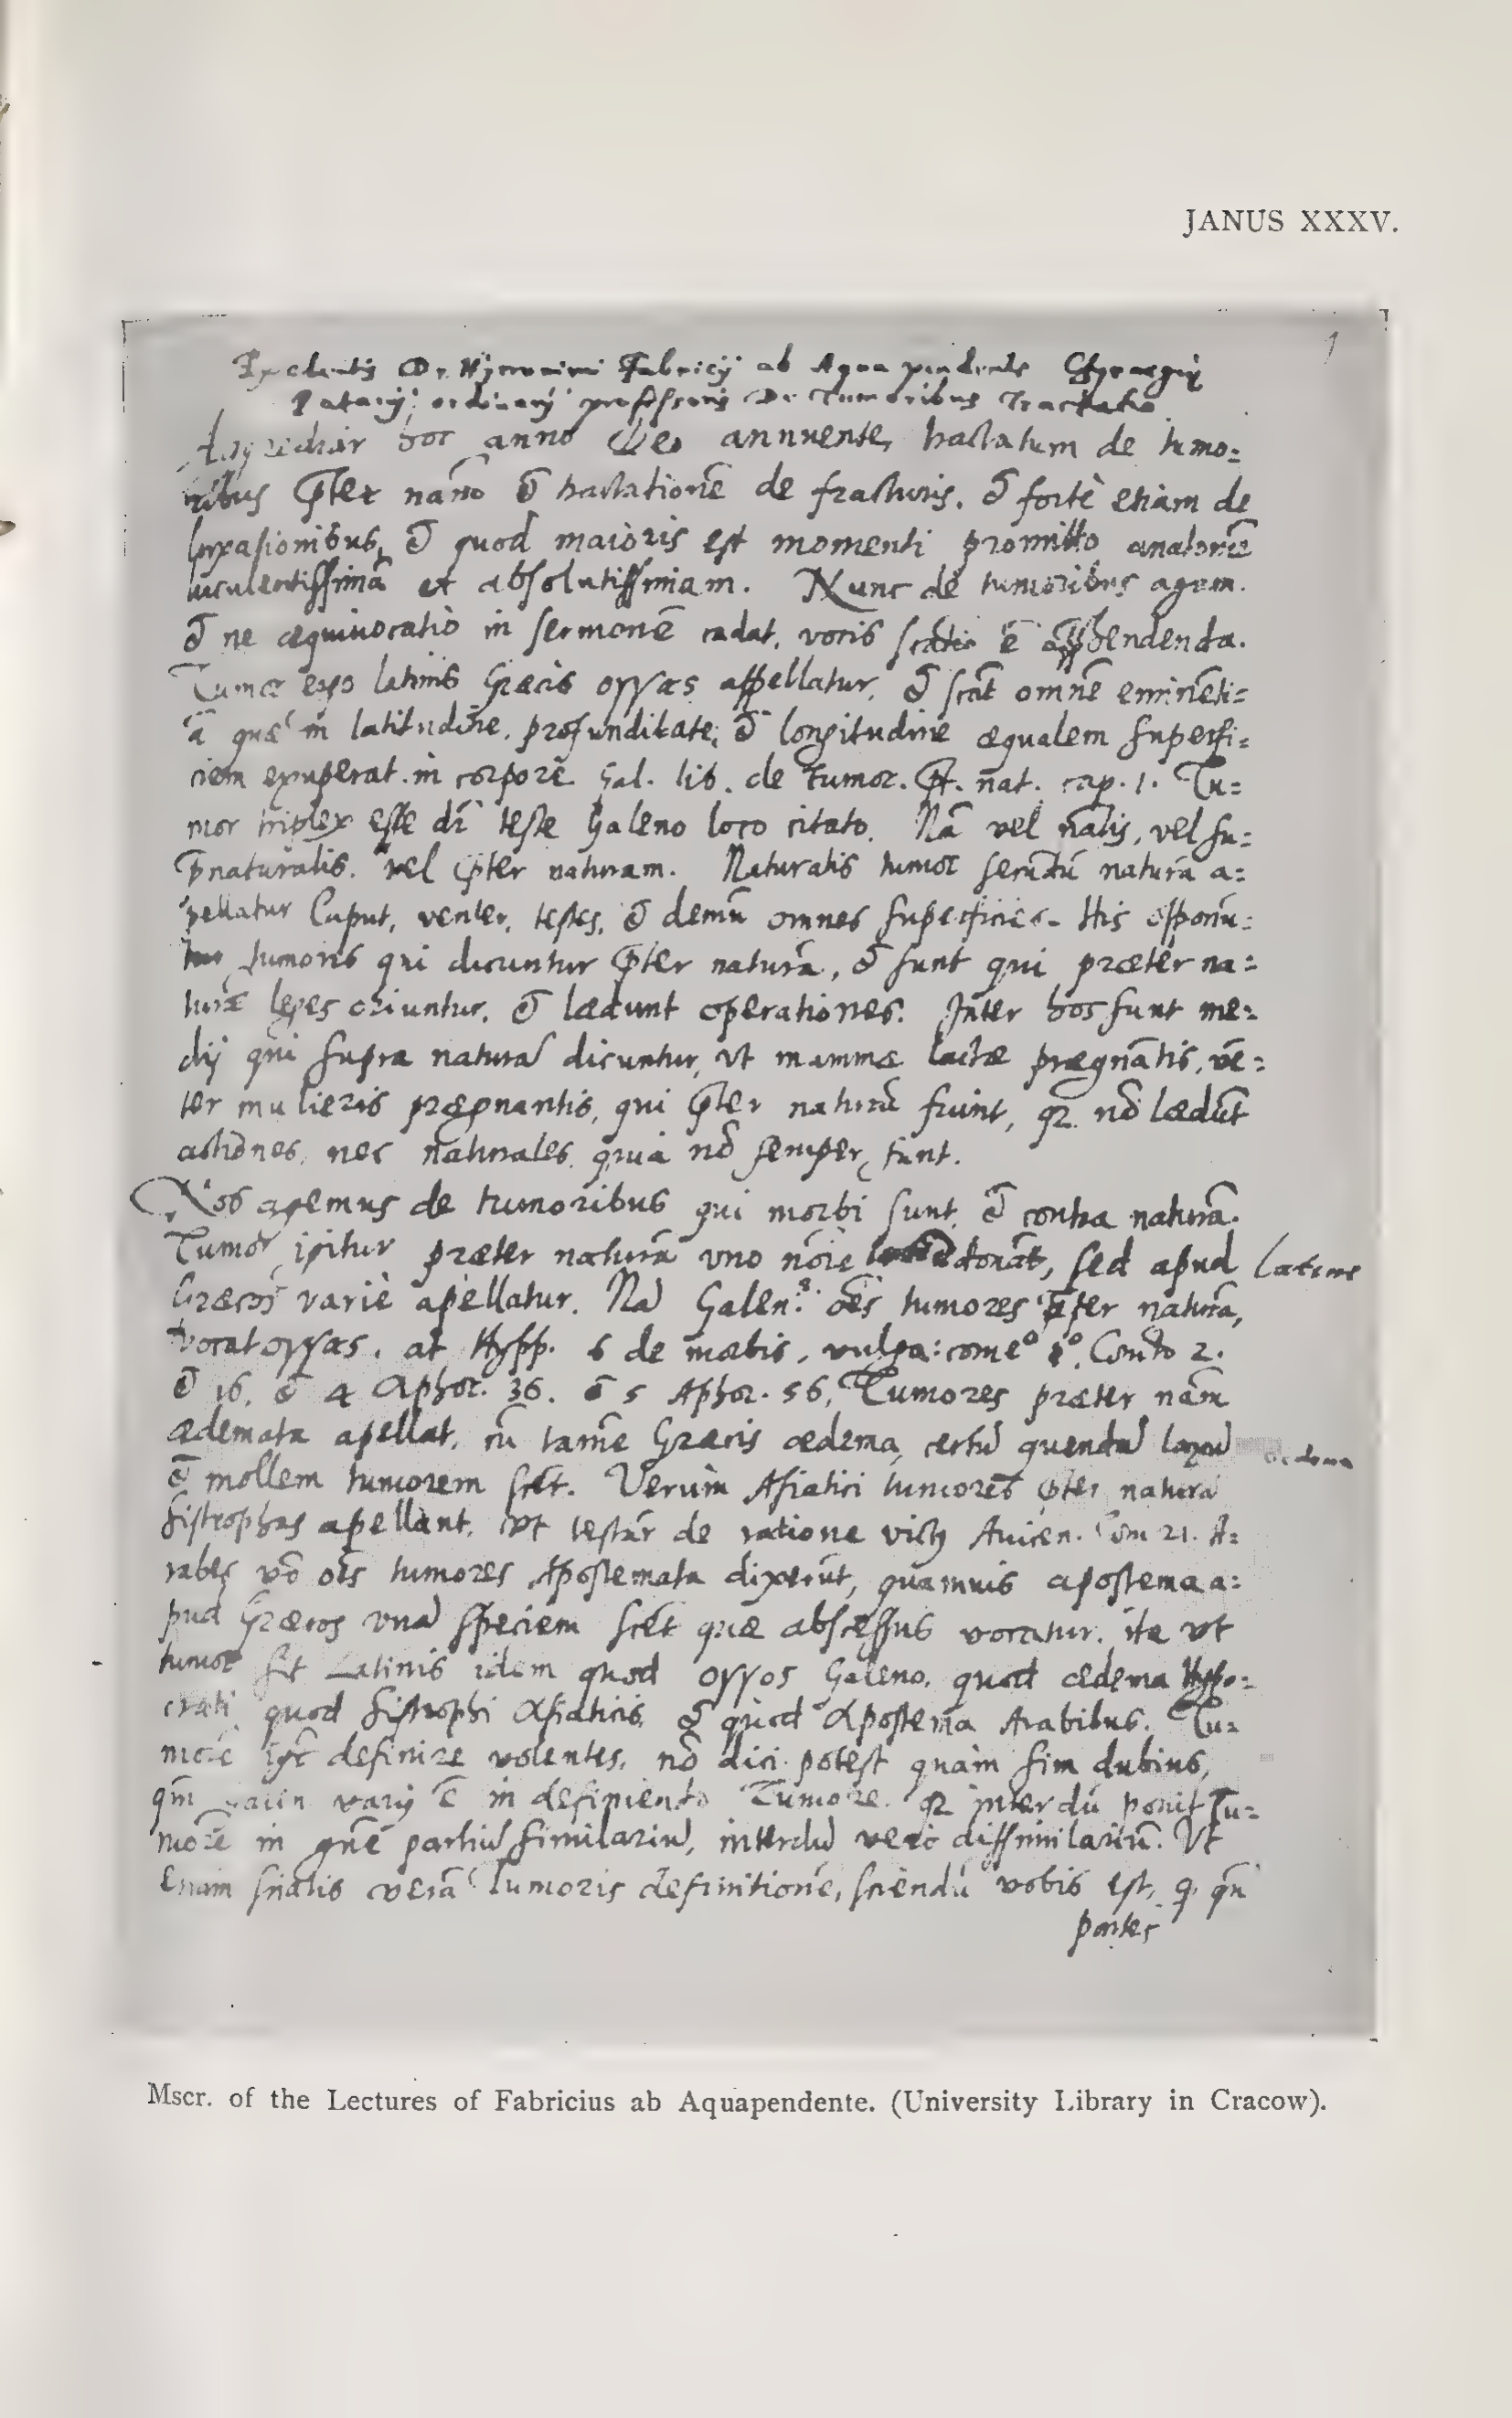 JANUS XXXV.
1
D. Hÿeronimi Fabricij ab Aqua pendente
Patavij ordinarij professoris De Tumoribus Tractatio
hoc anno Deo annuente, tractatum de tumo:
ribus p̄ter nam̄ & tractationē de fracturis, & fortè etiam de
luxationibus, & quod maioris est momenti promitto anatomiē
luculentissimā et absolutissimam. Nunc de tumoribus agam.
& ne æquiuocatio in sermonē cadat, vocis ē
Tumor ergo latinis Græcis oyyas appellatur, & scāt omnē eminēti:
ā quæ in latitudine, profunditate, & longitudine æqualem superfi:
ciem exuperat in corpore Gal. lib. de tumor. p̄t. nat. cap. 1. Tu:
mor triplex esse dr̄ teste Galeno loco citato. Nā vel nālis, vel su:
p̄naturalis, vel p̄ter naturam. Naturalis tumor secundū naturā a:
pellatur Caput, venter, testes, & demū omnes superficies. His opponū:
tur tumores qui dicuntur p̄ter naturā, & sunt qui præter na:
turæ leges oriuntur, & lædunt operationes. Inter hos sunt me:
dij qui supra naturā dicuntur, vt mammæ lactæ prægnātis, vē:
ter mulieris prægnantis, qui p̄ter naturā sunt, qz nō lædūt
actiōnes, nec naturales, quia nō semper sunt.
Nos agemus de tumoribus qui morbi sunt, & contra naturā.
Tumor igitur præter naturā uno nōie donāt, sed apud latine
Græcos variè apellatur. Nā Galen. oēs tumores p̄ter naturā,
vocat oyyas, at Hypp. 6 de morbis, vulga: come° 1°. Com̄to 2.
& 16. & 4 Aphor. 36. & 5 Aphor. 56, Tumores præter nām
ædemata apellat, cū tamē Græcis ædema, certū quendā laxū
& mollem tumorem scēt. Verùm Asiatici tumores p̄ter naturā
sistrophas apellant, vt testār de ratione vict9 Auicen. Com 21. A:
rabes vō oēs tumores Apostemata dixerūt, quamuis apostema a:
pud Græcos unā speciem scēt quæ abscessus vocatur, ita vt
tumor sit Latinis idem quod oyyos Galeno, quod ædema Hypo:
crati, quod sistrophi Asiaticis, & quod Apostema Arabibus. Tu:
morē definire volentes, nō dici potest quàm sim dubius,
qm̄ varij ē in definiendo Tumore. qz interdū ponit Tu:
morē in gñe partiū similariū, interdū vero dissimilariū. Vt
verā Tumoris definitionē, sciendū vobis est, q qn̄
partes
Mscr. of the Lectures of Fabricius ab Aquapendente. (University Library in Cracow).